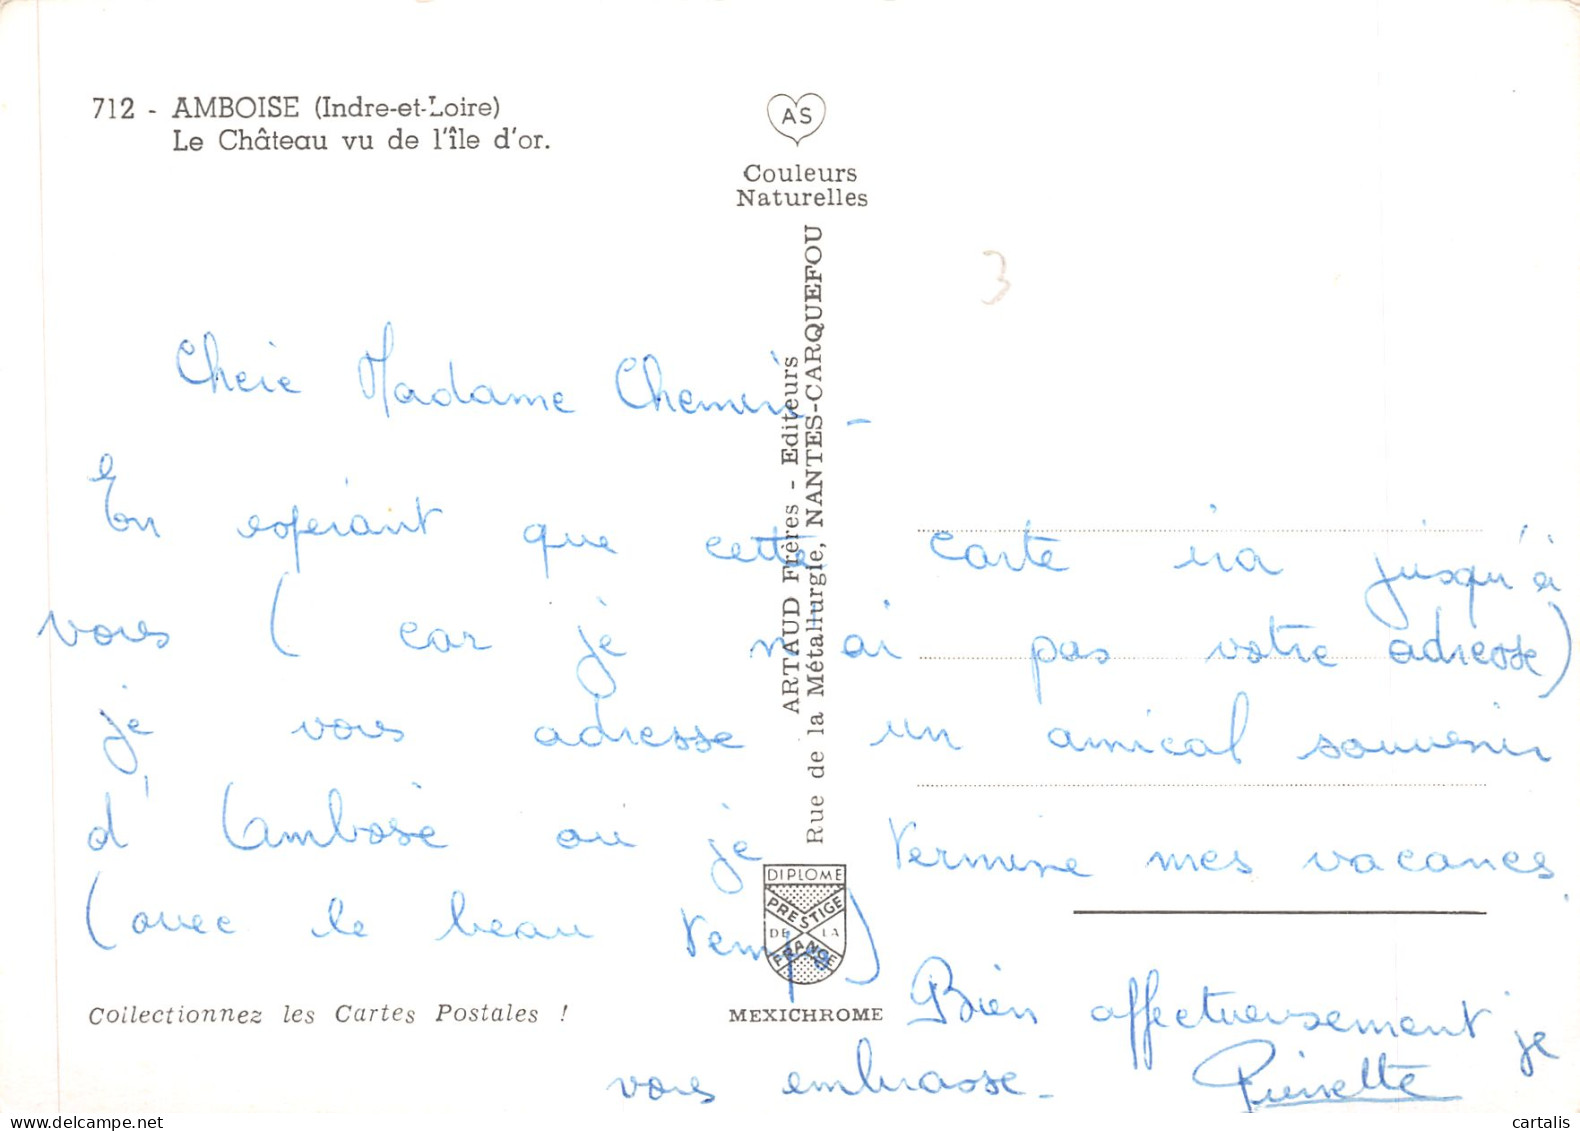 712 - AMBOISE (Indre-et-Loire)
Le Château vu de l'île d'or.
AS
Couleurs
Naturelles
ARTAUD Frères - Editeurs
Rue de la Métallurgie, NANTES-CARQUEFOU
3
Chère Madame
En espérant que cette carte ira jusqu'à
vous ( car je n'ai pas votre adresse)
je vous adresse un amical souvenir
d' Amboise où je termine mes vacances.
(avec le beau temps)
Bien affectueusement je
vous embrasse -
Pierrette
DIPLOME
PRESTIGE
DE LA
FRANCE
MEXICHROME
Collectionnez les Cartes Postales !
www.delcampe.net
cartalis